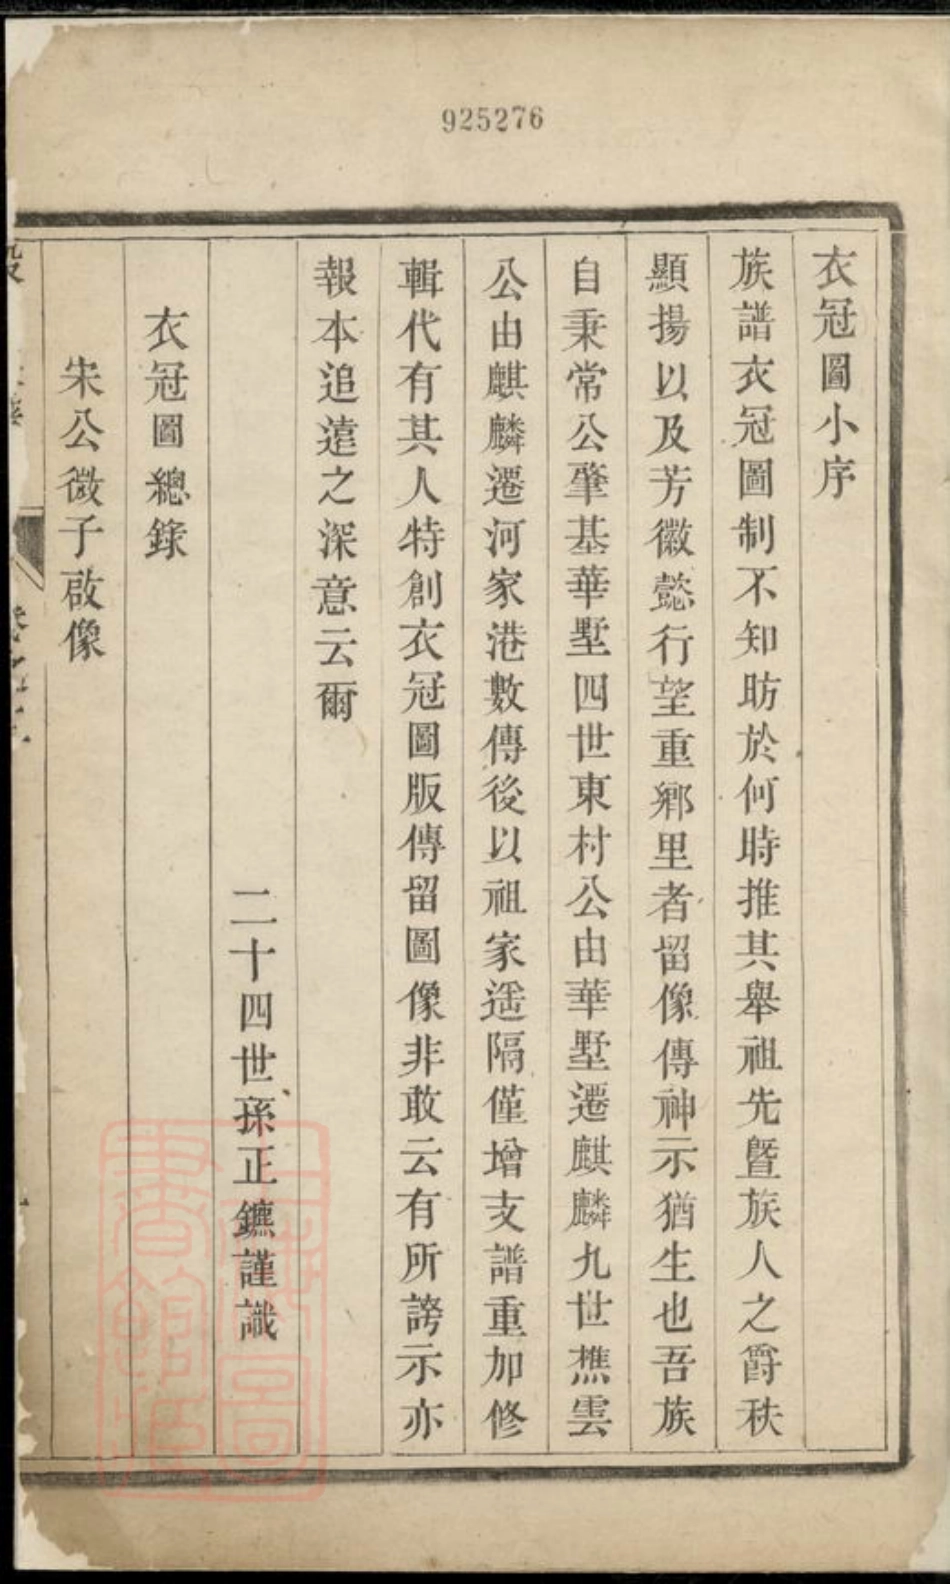 925276
衣冠圖小序
族譜衣冠圖制不知昉於何時推其舉祖先暨族人之爵秩
顯揚以及芳徽懿行望重鄉里者留像傳神示猶生也吾族
自秉常公肇基華墅四世東村公由華墅遷麒麟九世樵雲
公由麒麟遷河家港數傳後以祖家遥隔僅增支譜重加修
輯代有其人特創衣冠圖版傳留圖像非敢云有所誇示亦
報本追遠之深意云爾
二十四世孫正鑣謹識
衣冠圖總錄
宋公微子啟像